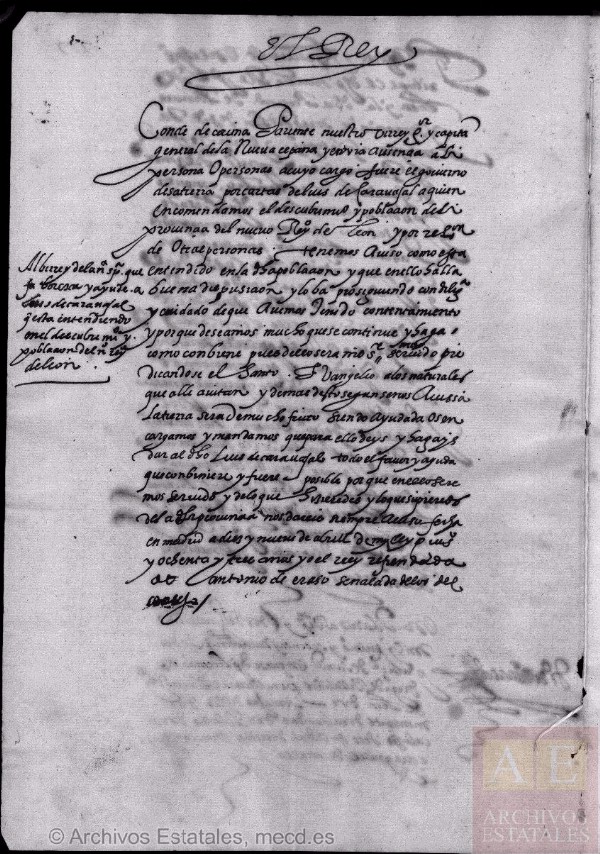 El Rey
Conde de coruña Pariente nuestro virrey gr y capitan
general de la Nueva españa y en vuestra Ausençia a la
persona O personas a cuyo cargo fuere el govierno
desa tierra por cartas de luis de Caravajal a quien
Encomendamos el descubrimio y poblaçon de la
provinçia del nuevo Reyo de Leon y por relon
de Otras personas tenemos Aviso como esta
entendido en la dha poblaçon y que en ello halla
buena dispusiçion y lo ba prosiguiendo con diligª
y cuidado de que Avemos Tenido contentamiento
y porque deseamos mucho que se continue y haga
como conbiene pues dello sera nro sr servido pre
dicandose el Santo Evangelio a los naturales
que alli avitan y demas desto segun se nos Avissa
La tierra sera de mucho fruto siendo Ayudada Os en
cargamos y mandamos que para ello deys y hagays
dar al dho Luis de caravajal todo el favor y ayuda
que conbiniere y fuere posible por que en ello sere
mos servido y de lo que hizieredes y lo que supieredes
de la dha provinçia nos dareis siempre Aviso fecha
en madrid a diez y nueve de abrill de mill y quis
y ochenta y tres años yo el rey refrendada
de antonio de eraso señalada de los del
consejo /
Al virrey de la na spª que
faborezca y ayude a
luis de caravajal
q esta entendiendo
en el descubrimo y
poblaçon del no reyo
de leon.
© Archivos Estatales, mecd.es
AE
ARCHIVOS
ESTATALES